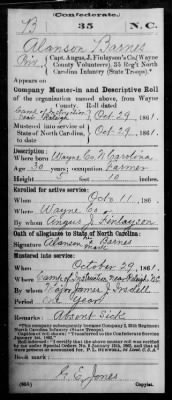 (Confederate.)
B 35 N.C.
Alanson Barnes
Pvt., Capt. Angus J. Finlayson's Co. (Wayne
County Volunteers), 35 Reg't North
Carolina Infantry (State Troops).*
Appears on
Company Muster-in and Descriptive Roll
of the organization named above, from Wayne
County. Roll dated
Camp of Instruction
near Raleigh, Oct 29, 1861.
Mustered into service of
State of North Carolina: Oct 29, 1861.
Description:
Where born Wayne Co. N. Carolina
Age 30 years; occupation Farmer
Height 5 feet 10 inches.
Enrolled for active service:
When Octo 11, 1861.
Where Wayne Co.
By whom Angus J. Finlayson
Oath of allegiance to State of North Carolina:
Signature Alanson his x mark Barnes
Mustered into service:
When October 29, 1861.
Where Camp of Instruction near Raleigh N.C.
By whom Major James J. Iredell
Period one year
Remarks: Absent Sick
*This company subsequently became Company
North Carolina Infantry (State Troops).
Book mark:
G. E. Jones
Copyist.